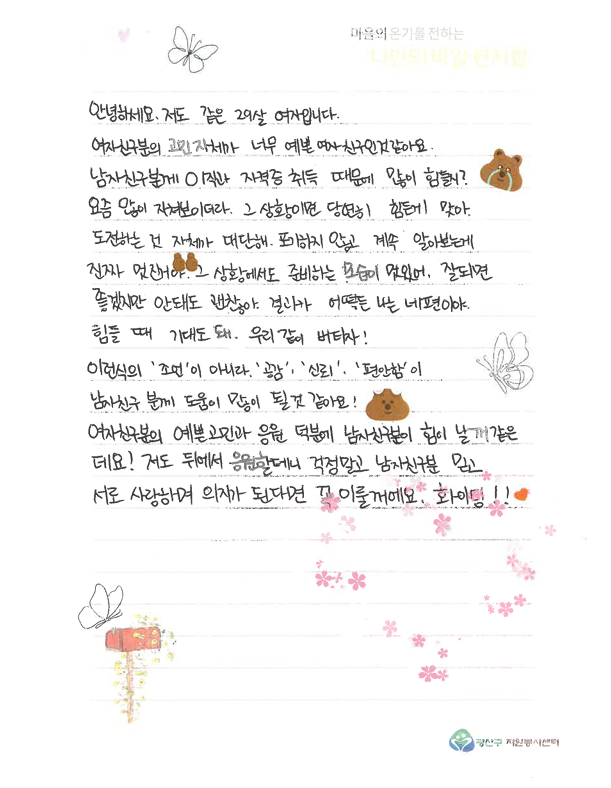 마음의 온기를 전하는
나만의 비밀 편지함
안녕하세요. 저도 같은 29살 여자입니다.
여자친구분의 고민 자체가 너무 예쁜 여자친구인것같아요.
남자친구분께 이직과 자격증 취득 때문에 많이 힘들지?
요즘 많이 지쳐보이더라. 그 상황이면 당연히 힘든게 맞아.
도전하는 것 자체가 대단해. 포기하지 않고 계속 알아보는게
진짜 멋진거야. 그 상황에서도 준비하는 모습이 멋있어. 잘되면
좋겠지만 안돼도 괜찮아. 결과가 어떻든 나는 네편이야.
힘들 때 기대도 돼. 우리 같이 버티자!
이런식의 '조언'이 아니라, '공감', '신뢰', '편안함'이
남자친구 분께 도움이 많이 될것 같아요!
여자친구분의 예쁜고민과 응원 덕분에 남자친구분이 힘이 날꺼같은
데요! 저도 뒤에서 응원할테니 걱정말고 남자친구분 믿고
서로 사랑하며 의지가 된다면 꼭 이룰꺼에요. 화이팅!!
광산구 자원봉사센터